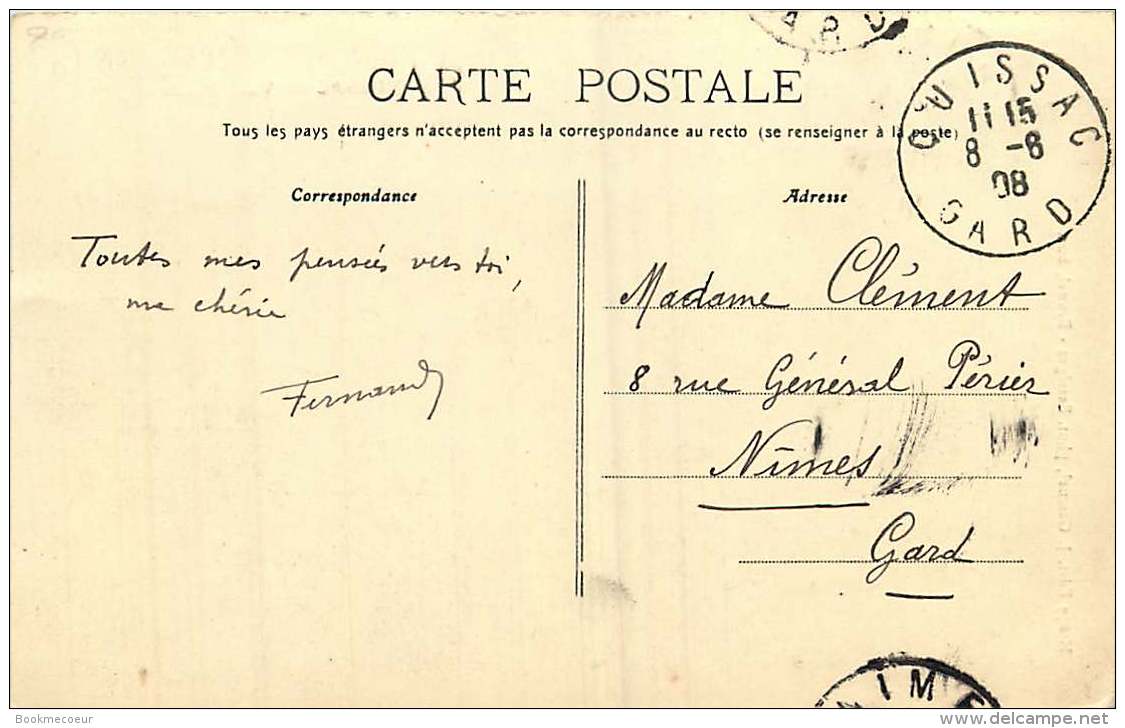 ARD
CARTE POSTALE
Tous les pays étrangers n'acceptent pas la correspondance au recto (se renseigner à la poste)
QUISSAC
11 15
8 -8
08
GARD
Correspondance
Toutes mes pensées vers toi,
ma chérie
Fernand
Adresse
Madame Clément
8 rue Général Périer
Nîmes
Gard
NIME
Bookmecoeur
www.delcampe.net